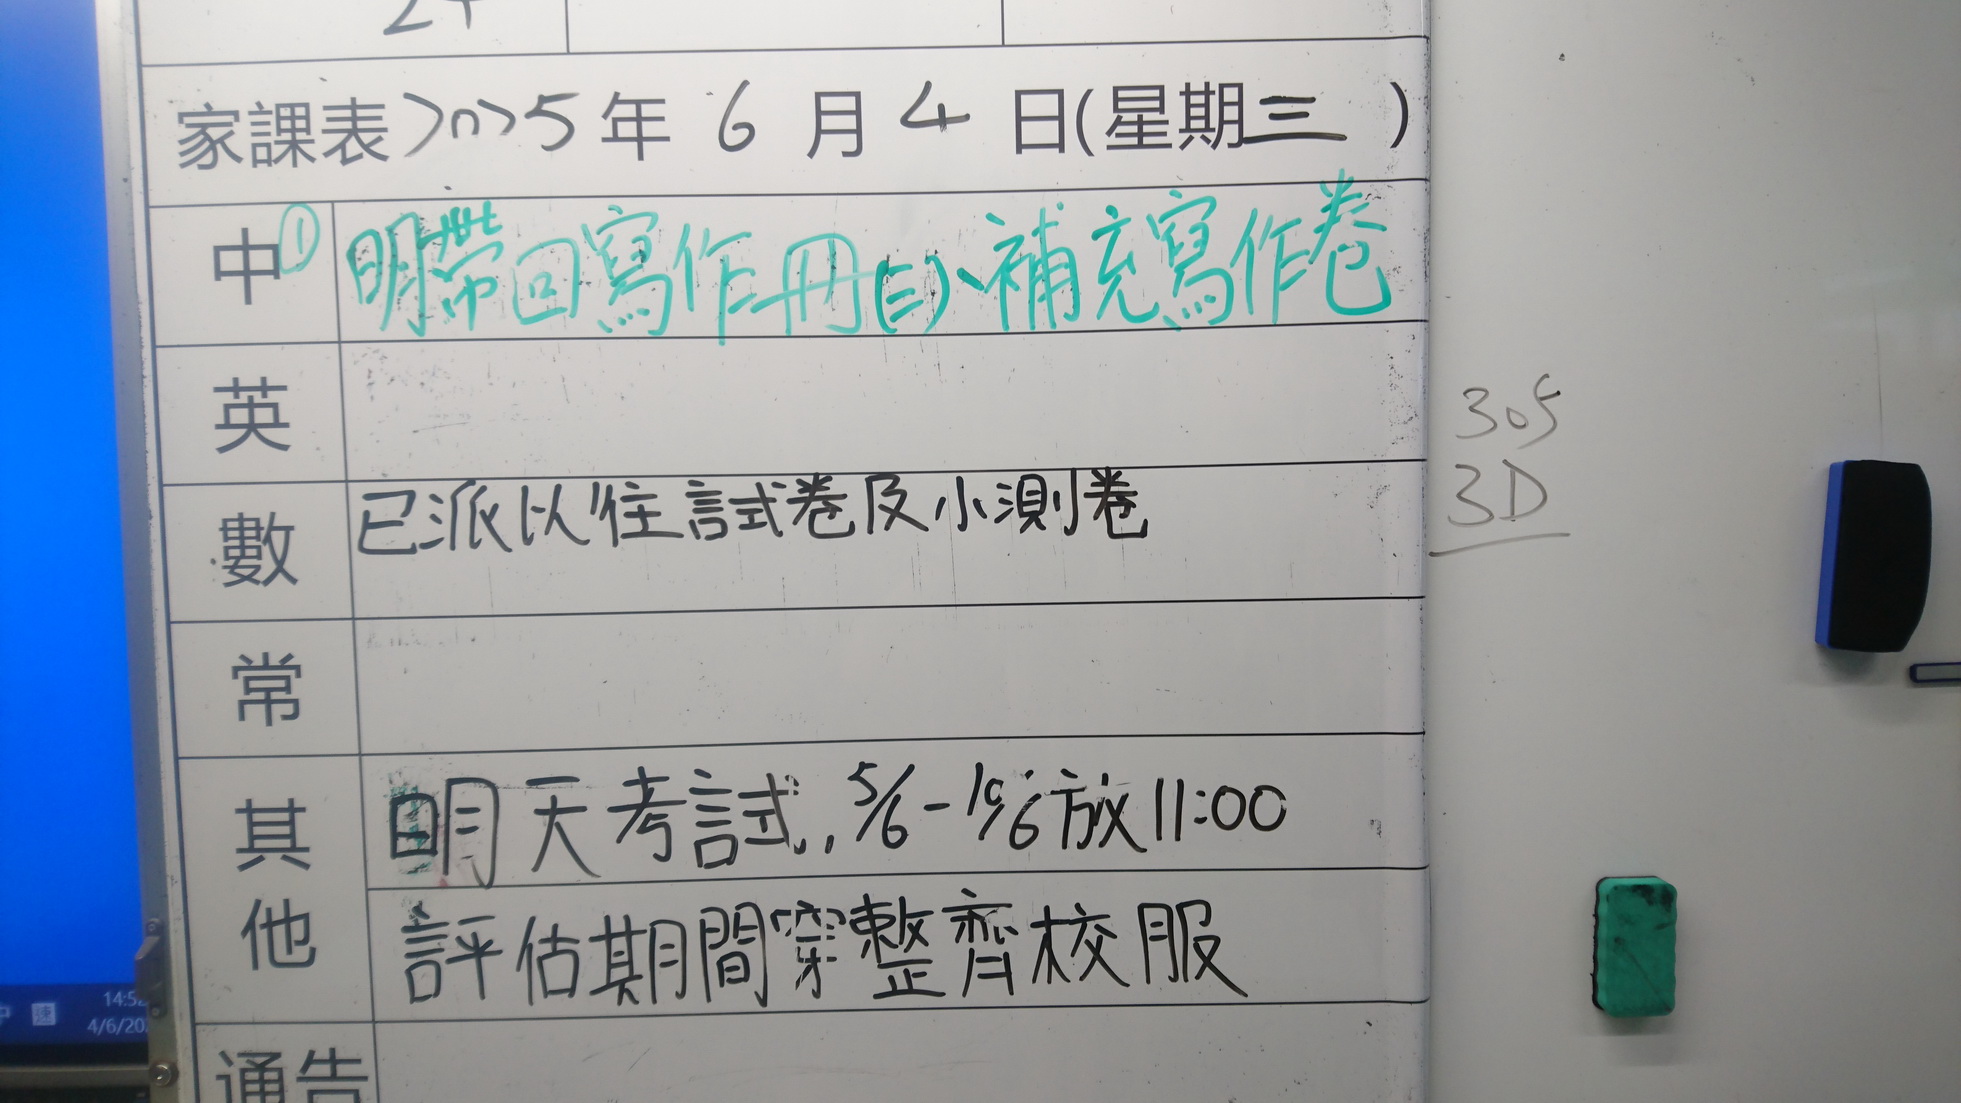 家課表 2025年 6月 4日(星期三)
中 ① 明帶回寫作冊(三)、補充寫作卷
英
數 已派以往試卷及小測卷
常
其他 明天考試, 5/6-10/6放11:00
評估期間穿整齊校服
通告
305
3D
中
14:5
4/6/20